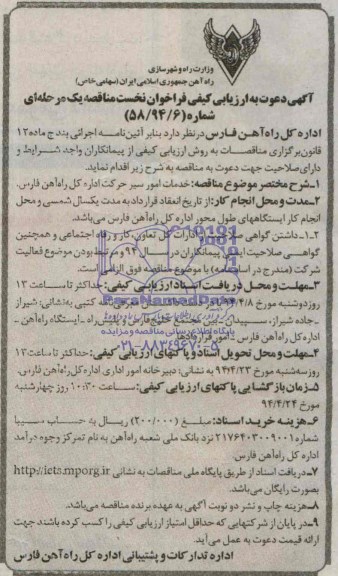 وزارت راه و شهرسازی
راه آهن جمهوری اسلامی ایران (سهامی خاص)
آگهی دعوت به ارزیابی کیفی فراخوان نخست مناقصه یک مرحله‌ای
شماره (۵۸/۹۴/۶)
اداره کل راه‌آهن فارس در نظر دارد بنابر آئین‌نامه اجرائی بند ج ماده ۱۲
قانون برگزاری مناقصات به روش ارزیابی کیفی از پیمانکاران واجد شرایط و
دارای صلاحیت جهت دعوت به مناقصه به شرح زیر اقدام نماید.
۱-شرح مختصر موضوع مناقصه: خدمات امور سیر حرکت اداره کل راه‌آهن فارس.
۲-مدت و محل انجام کار: از تاریخ انعقاد قرارداد به مدت یکسال شمسی و محل
انجام کار ایستگاههای طول محور اداره کل راه‌آهن فارس می‌باشد.
۲-۱-داشتن گواهی ادارات کل تعاون، کار و رفاه اجتماعی و همچنین
گواهی صلاحیت پیمانکاران در سال ۹۴ و مرتبط بودن موضوع فعالیت
شرکت (مندرج در اساسنامه) با موضوع مناقصه فوق الزامی است.
۳-مهلت و محل دریافت اسناد ارزیابی کیفی: حداکثر تا ساعت ۱۳
روز دوشنبه مورخ کتبی به نشانی: شیراز
-جاده شیراز، راه - ایستگاه راه‌آهن -
اداره کل راه‌آهن فارس - امور قراردادها
۴-مهلت و محل تحویل اسناد و پاکتهای ارزیابی کیفی: حداکثر تا ساعت ۱۳
روز سه‌شنبه مورخ ۹۴/۴/۲۳ به نشانی: دبیرخانه امور اداری اداره کل راه‌آهن فارس.
۵-زمان بازگشایی پاکتهای ارزیابی کیفی: ساعت ۱۰:۳۰ روز چهارشنبه
مورخ ۹۴/۴/۲۴
۶-هزینه خرید اسناد: مبلغ (۲۰۰/۰۰۰) ریال به حساب سیبا
شماره ۲۱۷۶۴۰۳۰۰۹۰۰۱ نزد بانک ملی شعبه راه‌آهن به نام تمرکز وجوه درآمد
اداره کل راه‌آهن فارس.
۷-دریافت اسناد از طریق پایگاه ملی مناقصات به نشانی http://iets.mporg.ir
بصورت رایگان می‌باشد.
۸-هزینه چاپ و نشر دو نوبت آگهی به عهده برنده مناقصه می‌باشد.
۹-در پایان از شرکتهایی که حداقل امتیاز ارزیابی کیفی را کسب کرده باشند جهت
ارائه قیمت دعوت به عمل می‌آید.
اداره تدارکات و پشتیبانی اداره کل راه‌آهن فارس
ParsNamadData
پایگاه اطلاع رسانی مناقصه و مزایده
۰۲۱-۸۸۳۴۹۶۷۰-۵